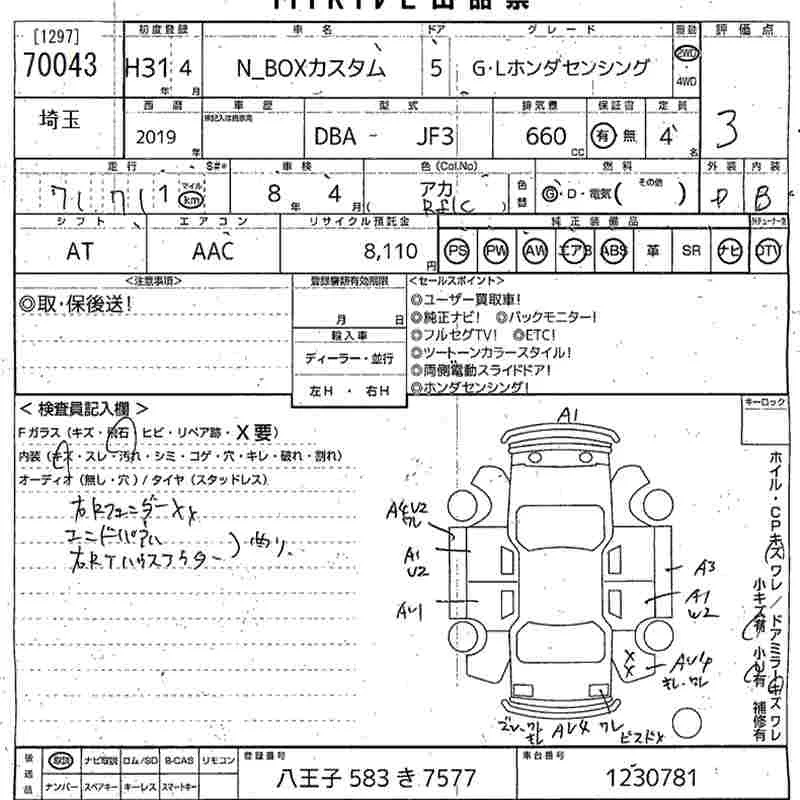 [1297]
70043
初度登録 車名 ドア グレード 駆動 評価点
H31 4 N_BOXカスタム 5 G・Lホンダセンシング 2WD 4WD 3
年 月
埼玉
西暦 車歴 型式 排気量 保証書 定員
2019 年 DBA - JF3 660 CC 有 無 4 名
走行 S#* 車検 色(Col.No) 燃料 外装 内装
マイル km 8 年 4 月 アカ 色替 G・D・電気( その他 ) D B
シフト エアコン リサイクル預託金 純正装備品
AT AAC 8,110 円 PS PW AW エアB ABS 革 SR ナビ DTV
<注意事項> 登録書類有効期限 <セールスポイント>
◎取・保後送! 月 日 ◎ユーザー買取車!
◎純正ナビ! ◎バックモニター!
輸入車 ◎フルセグTV! ◎ETC!
ディーラー・並行 ◎ツートーンカラースタイル!
◎両側電動スライドドア!
左H ・ 右H ◎ホンダセンシング!
<検査員記入欄> キーロック
Fガラス(キズ・飛石 ヒビ・リペア跡・X要)
内装(キズ・スレ・汚れ・シミ・コゲ・穴・キレ・破れ・割れ)
オーディオ(無し・穴)/タイヤ(スタッドレス)
A1
A4U2
ワレ
A1
U2
AU1
A3
A1
AU4
キレ・ワレ
X
X
AU4
ワレ
ホイル・CPキズ ワレ/ドアミラーキズ ワレ
小キズ有 小U有 補修有
後送品 取説 ナビ取説 ロム/SD B-CAS リモコン 登録番号 車台番号
ナンバー スペアキー キーレス スマートキー 八王子 583 き 7577 1230781